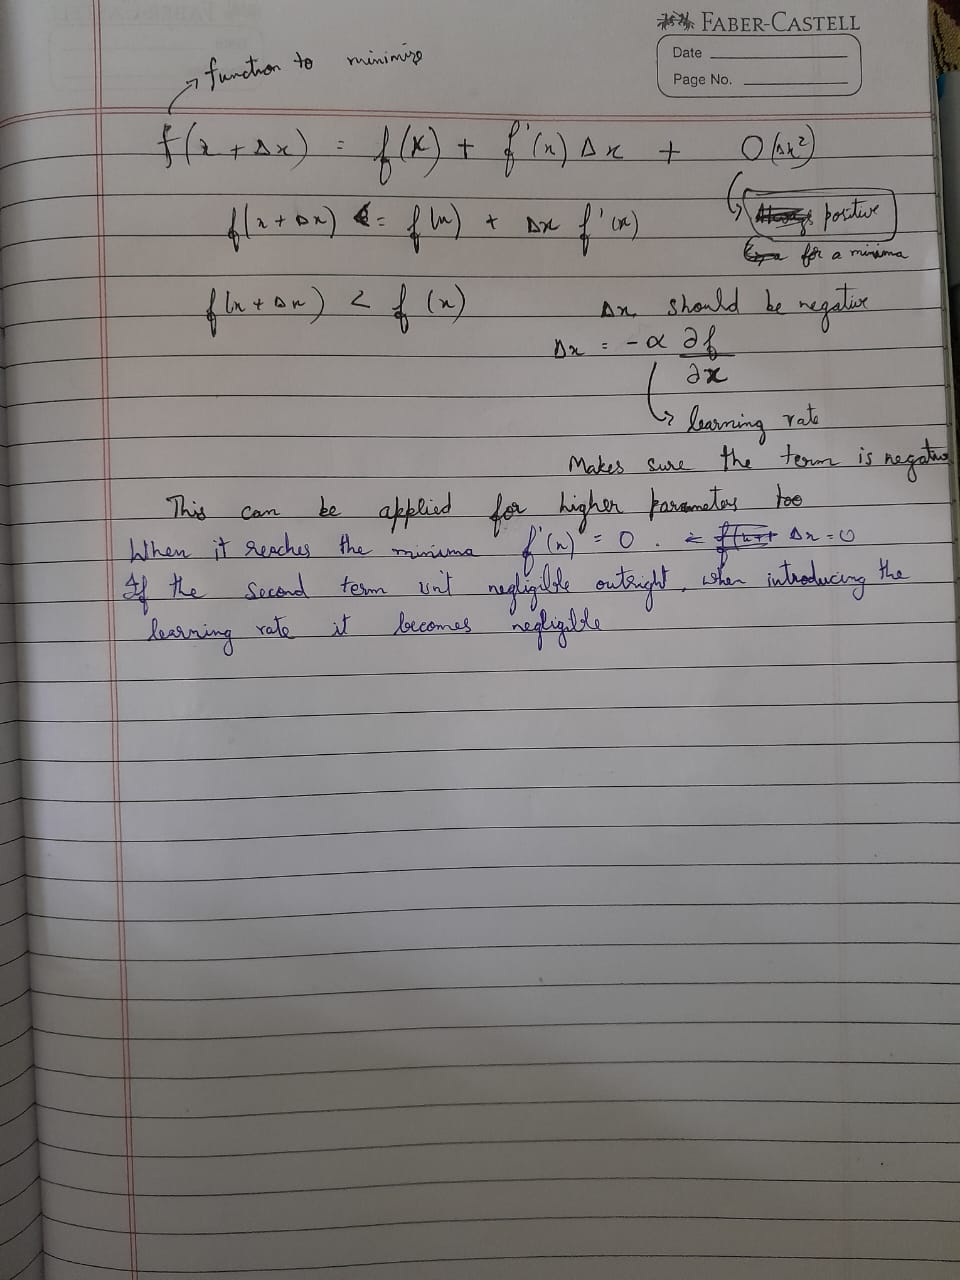 FABER-CASTELL
Date
Page No.
function to minimise
f(x + Δx) = f(x) + f'(x) Δx + O(Δx²)
f(x + Δx) = f(x) + Δx f'(x)
positive
for a minima
f(x + Δx) < f(x)
Δx should be negative
Δx = -α ∂f/∂x
learning rate
Makes sure the term is negative
This can be applied for higher parameters too
When it reaches the minima f'(x) = 0. Δx = 0
If the second term isn't negligible outright, when introducing the
learning rate it becomes negligible